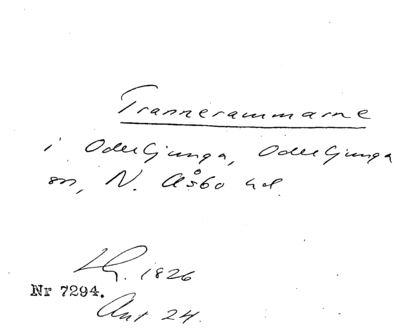 Trannerammarne
i Oderljunga, Oderljunga
sn, N. Åsbo hd.
LG. 1826
Nr 7294.
Ant 24.